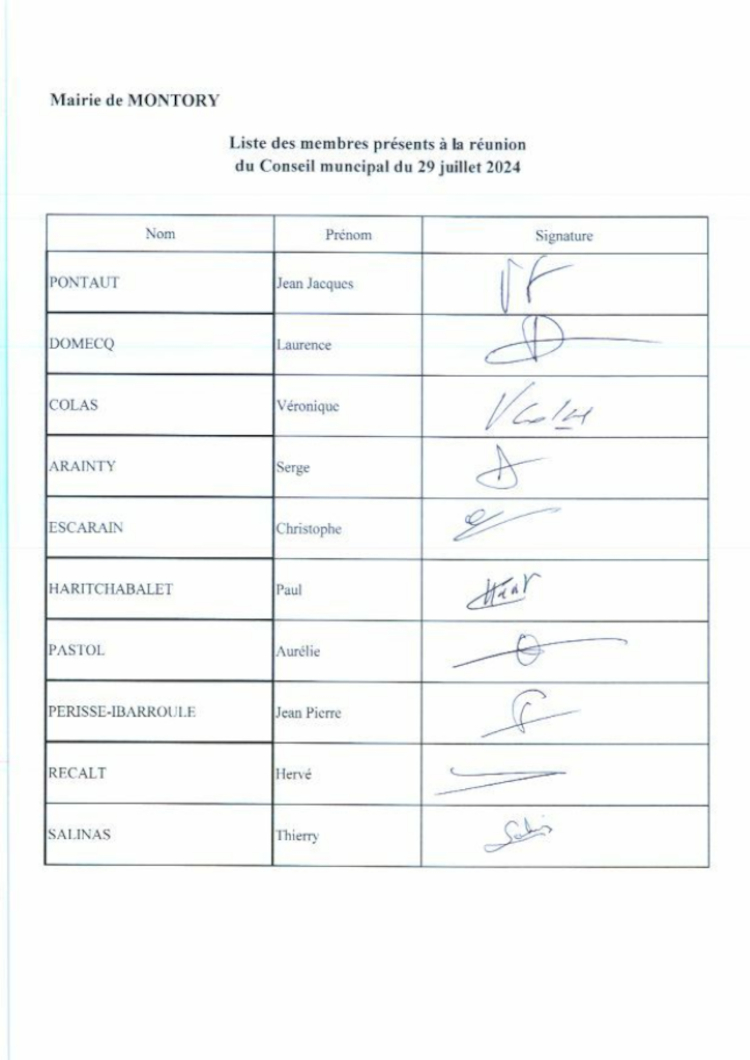 Mairie de MONTORY
Liste des membres présents à la réunion
du Conseil muncipal du 29 juillet 2024
Nom Prénom Signature
PONTAUT Jean Jacques
DOMECQ Laurence
COLAS Véronique VColas
ARAINTY Serge
ESCARAIN Christophe
HARITCHABALET Paul
PASTOL Aurélie
PERISSE-IBARROULE Jean Pierre
RECALT Hervé
SALINAS Thierry